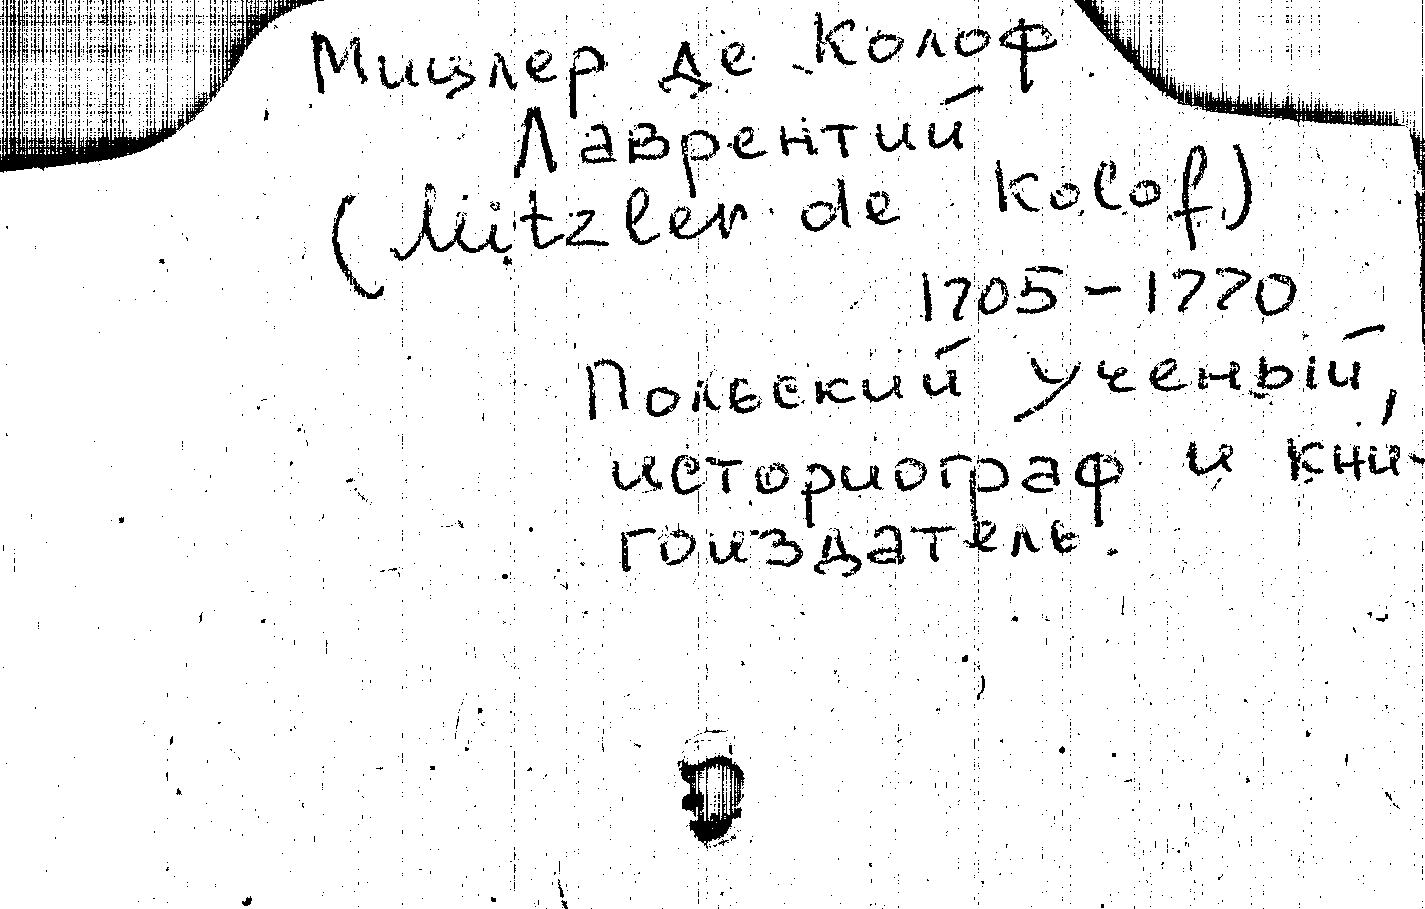 Мицлер де Колоф
Лаврентий
(Mitzler de Kolof)
1705-1770
Польский ученый,
историограф и кни-
гоиздатель.